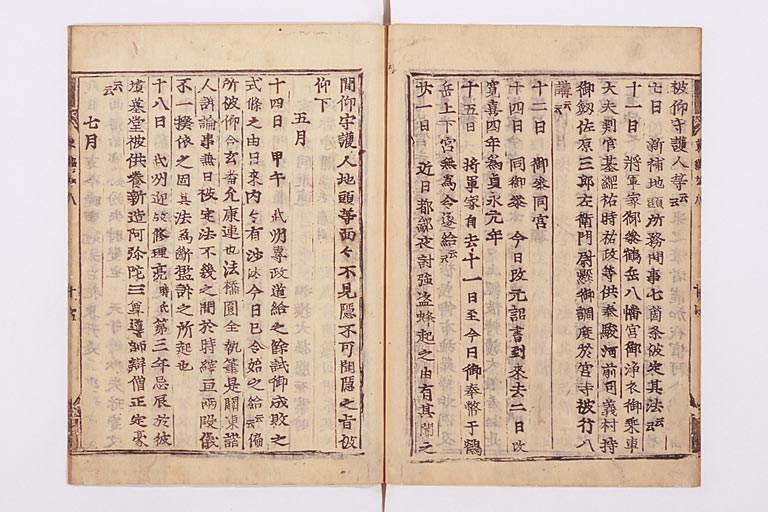 被仰守護人等云云
七日 新補地頭所務間事七箇条被定其法云云
十一日 将軍家御参鶴岳八幡宮御浄衣御乗車
大夫判官基綱祐時祐政等供奉殿河前司義村持
御釼佐原三郎左衛門尉懸御調度於宮寺被行八
講云云
十二日 御参同宮
十四日 同御参 今日改元詔書到来去二日改
寛喜四年為貞永元年
十五日 将軍家自去十一日至今日御奉幣于鶴
岳上下宮無為令遂給云云
廿一日 近日都鄙夜討強盗蜂起之由有其聞之
間仰守護人地頭等面々不見隠不可聞隠之旨被
仰下
五月
十四日 甲午 武州専政道給之余試御成敗之
式條之由日来内々有沙汰今日已令始之給云云偏
所被仰合玄蕃允康連也法橋圓全執筆是關東諸
人訴論事兼日被定法不幾之間於時縡亘両段儀
不一揆依之固其法為断濫訴之所起也
十八日 武州迎故修理亮時氏第三年忌辰於彼
墳墓堂被供養新造阿弥陀三尊導師辯僧正定豪
云云
七月